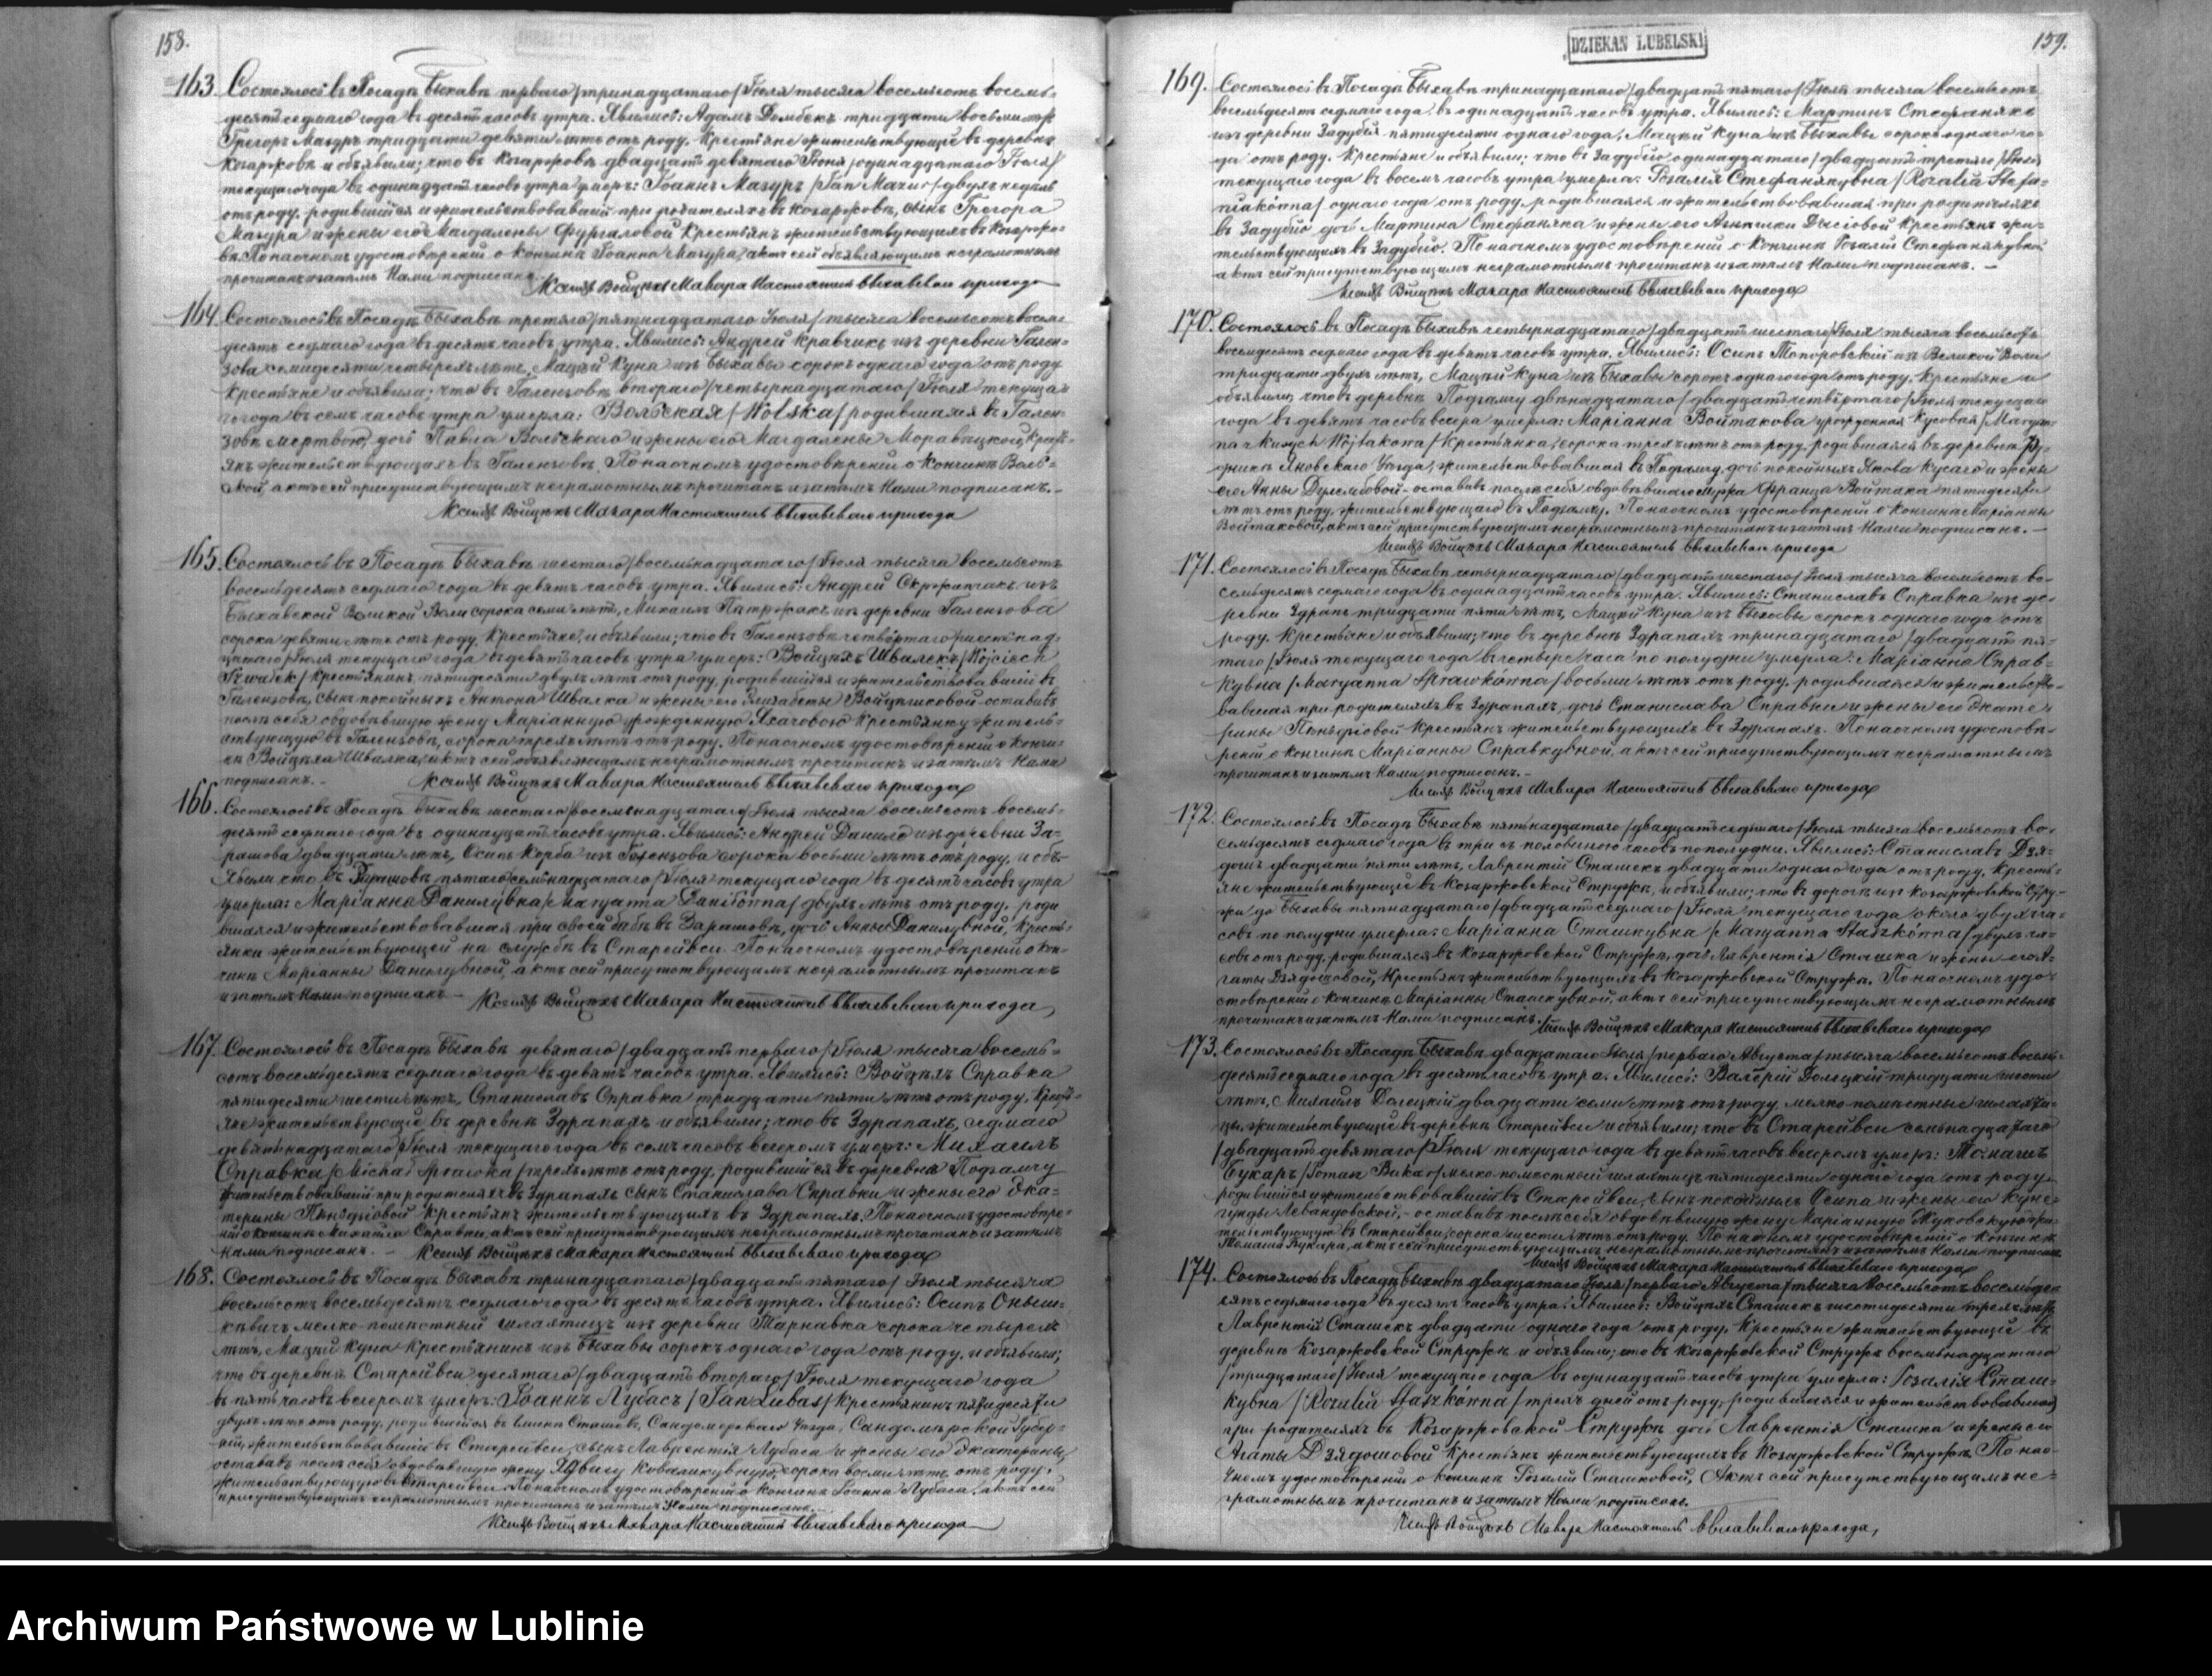 158.
163. Состоялось въ Посадѣ Быхавѣ перваго/тринадцатаго/Іюля тысяча восемьсотъ восемь-
десятъ седмаго года въ десять часовъ утра. Явились: Адамъ Дембекъ тридцати восьми лѣтъ
Грегоръ Мазуръ тридцати девяти лѣтъ отъ роду, Крестьяне жительствующіе въ деревнѣ
Козаржовѣ и объявили; что въ Козаржовѣ двадцать девятаго Іюня/одинадцатаго Іюля/
текущаго года въ одинадцать часовъ утра умеръ: Іоаннъ Мазуръ/Jan Mazur/двухъ недѣль
отъ роду, родившійся и жительствовавшій при родителяхъ въ Козаржовѣ, сынъ Грегора
Мазура и жены его Магдалены Фургаловой Крестьянъ жительствующихъ въ Козаржо-
вѣ. По наочномъ удостовѣреніи о кончинѣ Іоанна Мазура, актъ сей объявляющимъ неграмотнымъ
прочитанъ и затѣмъ Нами подписанъ.
Ксендзъ Войцѣхъ Макара Настоятель Быхавскаго прихода
164. Состоялось въ Посадѣ Быхавѣ третяго/пятнадцатаго Іюля/тысяча восемьсотъ восемь-
десятъ седмаго года въ десять часовъ утра. Явились: Андрей Кравчикъ изъ деревни Гален-
зова семидесяти четырехъ лѣтъ, Мацѣй Куна изъ Быхавы сорокъ однаго года отъ роду
Крестьяне и объявили; что въ Галензовѣ втораго/четырнадцатаго/Іюля текуща-
го года въ семь часовъ утра умерла: Вольская/Wolska/родившаяся въ Гален-
зовѣ мертвою, дочь Павла Вольскаго и жены его Магдалены Моравецкой Кресть-
янъ жительствующихъ въ Галензовѣ. По наочномъ удостовѣреніи о кончинѣ Воль-
ской, актъ сей присутствующимъ неграмотнымъ прочитанъ и затѣмъ Нами подписанъ.
Ксендзъ Войцѣхъ Макара Настоятель Быхавскаго прихода
165. Состоялось въ Посадѣ Быхавѣ шестаго/восемьнадцатаго/Іюля тысяча восемьсотъ
восемьдесятъ седмаго года въ девять часовъ утра. Явились: Андрей изъ
Быхавской Великой Воли сорока семи лѣтъ, Михаилъ изъ деревни Галензова
сорока девяти лѣтъ отъ роду, Крестьяне, и объявили; что въ Галензовѣ четвертаго/шестнад-
цатаго/Іюля текущаго года въ девять часовъ утра умеръ: Войцѣхъ Швалекъ/Wojciech
Szwałek/Крестьянинъ, пятидесяти двухъ лѣтъ отъ роду, родившійся и жительствовавшій въ
Галензовѣ, сынъ покойныхъ Антона Швалка и жены его Елизабеты Войциковой оставивъ
послѣ себя овдовѣвшую жену Маріанну урожденную Крестьянку житель-
ствующую въ Галензовѣ, сорока трехъ лѣтъ отъ роду. По наочномъ удостовѣреніи о кончи-
нѣ Войцѣха Швалка, актъ сей объявляющимъ неграмотнымъ прочитанъ и затѣмъ Нами
подписанъ.
Ксендзъ Войцѣхъ Макара Настоятель Быхавскаго прихода
166. Состоялось въ Посадѣ Быхавѣ шестаго/восемьнадцатаго/Іюля тысяча восемьсотъ восемь-
десятъ седмаго года въ одинадцать часовъ утра. Явились: Андрей Данило изъ деревни За-
рашова двадцати лѣтъ, Осипъ Корба изъ Галензова сорока восьми лѣтъ отъ роду, и объ-
явили что въ Зарашовѣ пятаго/семьнадцатаго/Іюля текущаго года въ десять часовъ утра
умерла: Маріанна Данилувна/Maryanna Daniłówna/двухъ лѣтъ отъ роду, роди
вшаяся и жительствовавшая при своей бабѣ въ Зарашовѣ, дочь Анны Данилувной, Кресть-
янки жительствующей на службѣ въ Старейвси. По наочномъ удостовѣреніи о кон-
чинѣ Маріанны Данилувной, актъ сей присутствующимъ неграмотнымъ прочитанъ
и затѣмъ Нами подписанъ.
Ксендзъ Войцѣхъ Макара Настоятель Быхавскаго прихода
167. Состоялось въ Посадѣ Быхавѣ девятаго/двадцать перваго/Іюля тысяча восемь-
сотъ восемьдесятъ седмаго года въ девять часовъ утра. Явились: Войцѣхъ Справка
пятидесяти шести лѣтъ, Станиславъ Справка тридцати пяти лѣтъ отъ роду, Кресть-
яне жительствующіе въ деревнѣ Здрапахъ и объявили; что въ Здрапахъ, седмаго
девятнадцатаго/Іюля текущаго года въ семь часовъ вечеромъ умеръ: Михаилъ
Справка/Michał Sprawka/трехъ лѣтъ отъ роду, родившійся въ деревнѣ Подзамчу
жительствовавшій при родителяхъ въ Здрапахъ сынъ Станислава Справки и жены его Ека-
терины Пеньдзіовой Крестьянъ жительствующихъ въ Здрапахъ. По наочномъ удостовѣре-
ніи о кончинѣ Михаила Справки, актъ сей присутствующимъ неграмотнымъ прочитанъ и затѣмъ
Нами подписанъ.
Ксендзъ Войцѣхъ Макара Настоятель Быхавскаго прихода
168. Состоялось въ Посадѣ Быхавѣ тринадцатаго/двадцать пятаго/Іюля тысяча
восемьсотъ восемьдесятъ седмаго года въ десять часовъ утра. Явились: Осипъ Оныш-
кевичъ мелко-помѣстный шляхтицъ изъ деревни Тарнавка сорока четырехъ
лѣтъ, Мацѣй Куна Крестьянинъ изъ Быхавы сорокъ однаго года отъ роду, и объявили;
что въ деревнѣ Старейвси десятаго/двадцать втораго/Іюля текущаго года
въ пять часовъ вечеромъ умеръ: Іоаннъ Лубасъ/Jan Lubas/Крестьянинъ пятидесяти
двухъ лѣтъ отъ роду, родившійся въ Сандомирскаго Уѣзда, Сандомирской Губер-
ніи, жительствовавшій въ Старейвси, сынъ Лаврентія Лубаса и жены его Екатерины,
оставивъ послѣ себя овдовѣвшую жену Ядвигу Коваликувную, сорока восьми лѣтъ отъ роду,
жительствующую въ Старейвси. По наочномъ удостовѣреніи о кончинѣ Іоанна Лубаса, актъ сей
присутствующимъ неграмотнымъ прочитанъ и затѣмъ Нами подписанъ.
Ксендзъ Войцѣхъ Макара Настоятель Быхавскаго прихода
DZIEKAN LUBELSKI
159.
169. Состоялось въ Посадѣ Быхавѣ тринадцатаго/двадцать пятаго/Іюля тысяча восемьсотъ
восемьдесятъ седмаго года, въ одинадцать часовъ утра. Явились: Мартинъ Стефанякъ
изъ деревни Задубья пятидесяти однаго года, Мацѣй Куна изъ Быхавы сорокъ однаго го-
да отъ роду, Крестьяне и объявили; что въ Задубью одинадцатаго/двадцать третяго/Іюля
текущаго года въ восемь часовъ утра умерла: Розалія Стефанякувна/Rozalia Stefa-
niakówna/однаго года отъ роду, родившаяся и жительствовавшая при родителяхъ
въ Задубью дочь Мартина Стефаняка и жены его Агнѣшки Крестьянъ жи-
тельствующихъ въ Задубью. По наочномъ удостовѣреніи о кончинѣ Розаліи Стефанякувной
актъ сей присутствующимъ неграмотнымъ прочитанъ и затѣмъ Нами подписанъ.
Ксендзъ Войцѣхъ Макара Настоятель Быхавскаго прихода
170. Состоялось въ Посадѣ Быхавѣ четырнадцатаго/двадцать шестаго/Іюля тысяча восемьсотъ
восемьдесятъ седмаго года въ девять часовъ утра. Явились: Осипъ Топоровскій изъ Великой Воли
тридцати двухъ лѣтъ, Мацѣй Куна изъ Быхавы сорокъ однаго года отъ роду, Крестьяне и
объявили, что въ деревнѣ Подзамчу двѣнадцатаго/двадцать четвертаго/Іюля текущаго
года въ девять часовъ вечера умерла: Маріанна Войтакова урожденная Кусовая/Maryan-
na z Kusych Wojtakowa/Крестьянка, сорока трехъ лѣтъ отъ роду, родившаяся въ деревнѣ Ру-
дникъ Яновскаго Уѣзда, жительствовавшая въ Подзамчу, дочь покойныхъ Якова Кусаго и жены
его Анны - оставивъ послѣ себя овдовѣвшаго мужа Франца Войтака пятидесяти
лѣтъ отъ роду, жительствующаго въ Подзамчу. По наочномъ удостовѣреніи о кончинѣ Маріанны
Войтаковой, актъ сей присутствующимъ неграмотнымъ прочитанъ и затѣмъ Нами подписанъ.
Ксендзъ Войцѣхъ Макара Настоятель Быхавскаго прихода
171. Состоялось въ Посадѣ Быхавѣ четырнадцатаго/двадцать шестаго/Іюля тысяча восемьсотъ во-
семьдесятъ седмаго года въ одинадцать часовъ утра. Явились: Станиславъ Справка изъ де-
ревни Здрапъ тридцати пяти лѣтъ, Мацѣй Куна изъ Быхавы сорокъ однаго года отъ
роду, Крестьяне и объявили; что въ деревнѣ Здрапахъ тринадцатаго/двадцать пя-
таго/Іюля текущаго года въ четыре часа по полудни умерла: Маріанна Справ-
кувна/Maryanna Sprawkówna/восьми лѣтъ отъ роду, родившаяся и жительство-
вавшая при родителяхъ въ Здрапахъ, дочь Станислава Справки и жены его Екате-
рины Пеньдзіовой Крестьянъ жительствующихъ въ Здрапахъ. По наочномъ удостовѣ-
реніи о кончинѣ Маріанны Справкувной, актъ сей присутствующимъ неграмотнымъ
прочитанъ и затѣмъ Нами подписанъ.
Ксендзъ Войцѣхъ Макара Настоятель Быхавскаго прихода
172. Состоялось въ Посадѣ Быхавѣ пятнадцатаго/двадцать седмаго/Іюля тысяча восемьсотъ во-
семьдесятъ седмаго года въ три съ половиною часовъ по полудни. Явились: Станиславъ Дзя-
дошъ двадцати пяти лѣтъ, Лаврентій Сташекъ двадцати однаго года отъ роду, Кресть-
яне жительствующіе въ Козаржовской Стружѣ, и объявили; что въ дорогѣ изъ Козаржовской Стру-
жи до Быхавы пятнадцатаго/двадцать седмаго/Іюля текущаго года около двухъ ча-
совъ по полудни умерла: Маріанна Сташкувна/Maryanna Staszkówna/двухъ ча-
совъ отъ роду, родившаяся въ Козаржовской Стружѣ, дочь Лаврентія Сташка и жены его А-
гаты Дзядошовой, Крестьянъ жительствующихъ въ Козаржовской Стружѣ. По наочномъ удо-
стовѣреніи о кончинѣ Маріанны Сташкувной, актъ сей присутствующимъ неграмотнымъ
прочитанъ и затѣмъ Нами подписанъ.
Ксендзъ Войцѣхъ Макара Настоятель Быхавскаго прихода
173. Состоялось въ Посадѣ Быхавѣ двадцатаго Іюля/перваго Августа/тысяча восемьсотъ восемь-
десятъ седмаго года въ десять часовъ утра. Явились: Валерій Долецкій тридцати шести
лѣтъ, Михаилъ Долецкій двадцати семи лѣтъ отъ роду, мелко-помѣстные шляхти-
цы, жительствующіе въ деревнѣ Старейвси и объявили; что въ Старейвси семьнадцатаго
/двадцать девятаго/Іюля текущаго года въ девять часовъ вечеромъ умеръ: Томашъ
Букаръ/Tomasz Bukar/мелко-помѣстный шляхтицъ пятидесяти однаго года отъ роду
родившійся и жительствовавшій въ Старейвси, сынъ покойныхъ Осипа и жены его Куне-
гунды Левандовской, - оставивъ послѣ себя овдовѣвшую жену Маріанную Жуковскую жи-
тельствующую въ Старейвси, сорока шести лѣтъ отъ роду. По наочномъ удостовѣреніи о кончинѣ
Томаша Букара, актъ сей присутствующимъ неграмотнымъ прочитанъ и затѣмъ Нами подписанъ
Ксендзъ Войцѣхъ Макара Настоятель Быхавскаго прихода
174. Состоялось въ Посадѣ Быхавѣ двадцатаго Іюля/перваго Августа/тысяча восемьсотъ восемьде-
сятъ седьмаго года въ десять часовъ утра. Явились: Войцѣхъ Сташекъ шестидесяти трехъ лѣтъ
Лаврентій Сташекъ двадцати однаго года отъ роду, Крестьяне жительствующіе въ
деревнѣ Козаржовской Стружѣ и объявили; что въ Козаржовской Стружѣ восемьнадцатаго
/тридцатаго/Іюля текущаго года въ одинадцать часовъ утра умерла: Розалія Сташ-
кувна/Rozalia Staszkówna/трехъ дней отъ роду, родившаяся и жительствовавшая
при родителяхъ въ Козаржовской Стружѣ дочь Лаврентія Сташка и жены его
Агаты Дзядошовой Крестьянъ жительствующихъ въ Козаржовской Стружѣ. По нао-
чномъ удостовѣреніи о кончинѣ Розаліи Сташковой, Актъ сей присутствующимъ не-
грамотнымъ прочитанъ и затѣмъ Нами подписанъ.
Ксендзъ Войцѣхъ Макара Настоятель Быхавскаго прихода,
Archiwum Państwowe w Lublinie